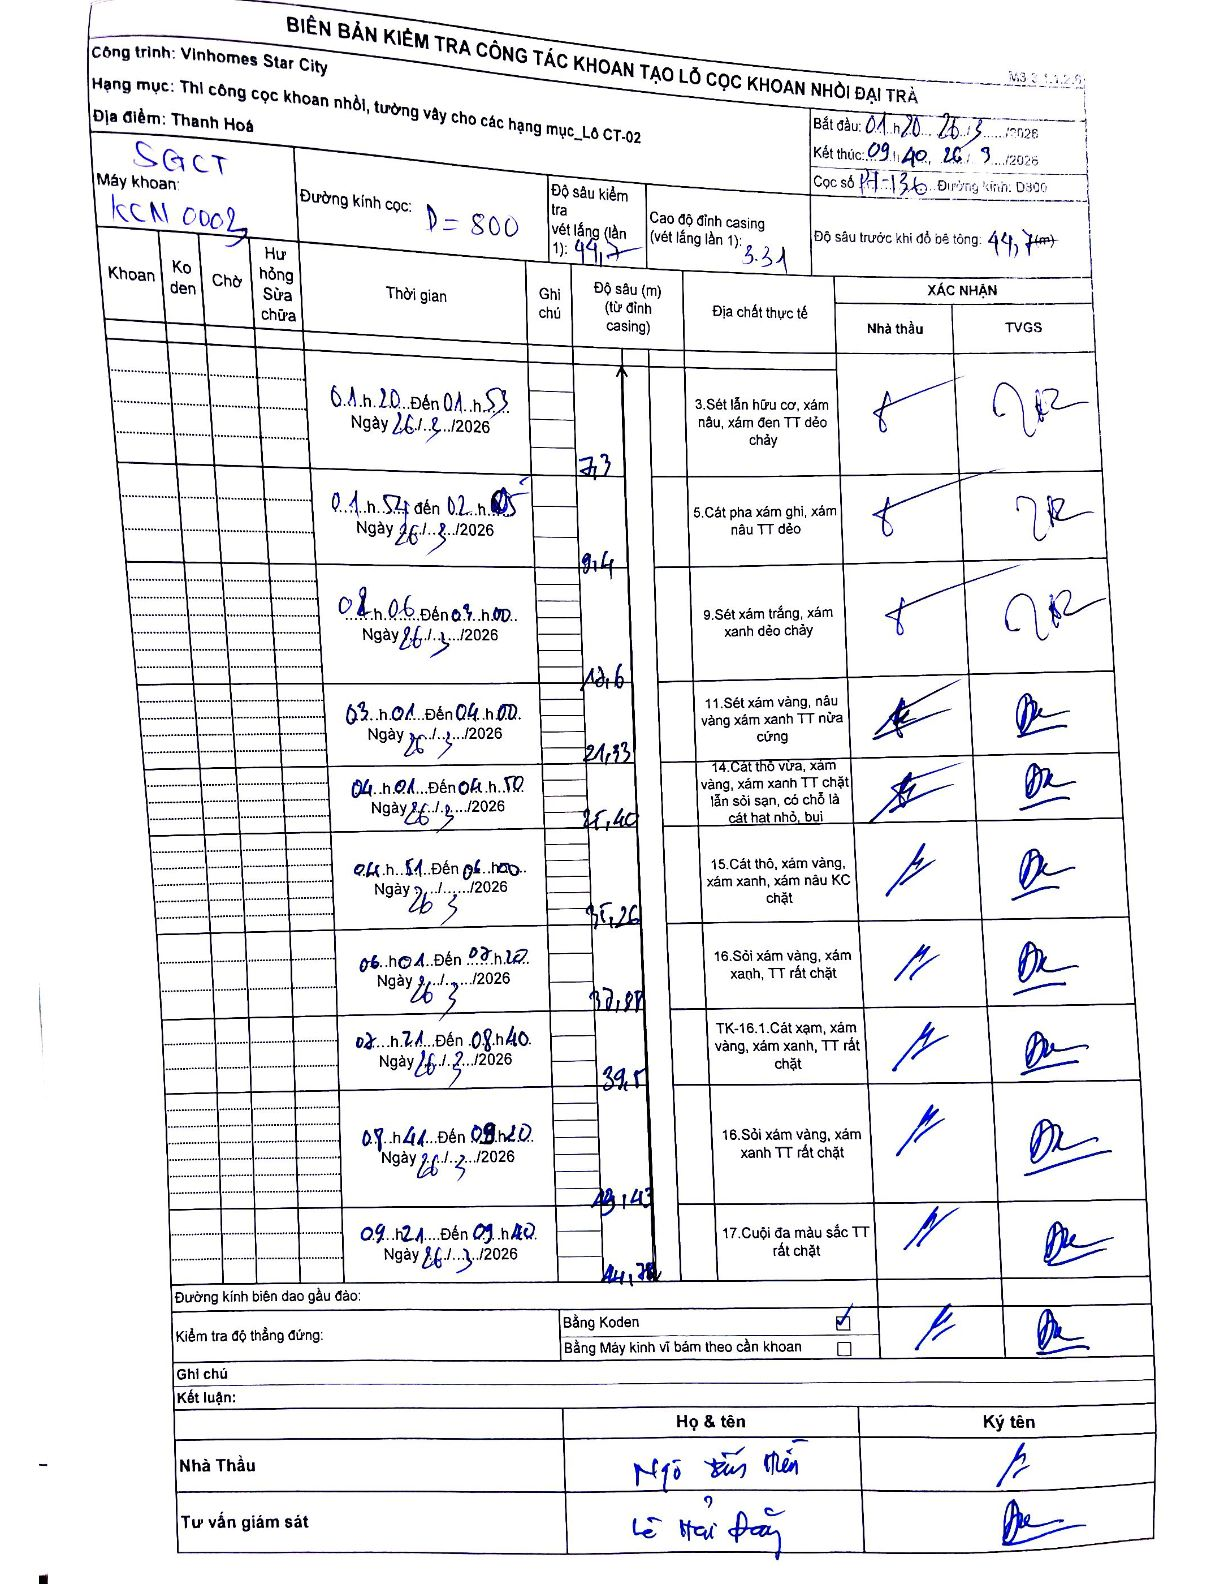 BIÊN BẢN KIỂM TRA CÔNG TÁC KHOAN TẠO LỖ CỌC KHOAN NHỒI ĐẠI TRÀ
Công trình: Vinhomes Star City
Hạng mục: Thi công cọc khoan nhồi, tường vây cho các hạng mục_Lô CT-02
Địa điểm: Thanh Hoá
Bắt đầu: 01 h 20 26/3/2026
Kết thúc: 09h 40, 26/3/2026
Cọc số P1-136 Đường kính: D800
SGCT
Máy khoan:
KCN 0003
Đường kính cọc: D = 800
Độ sâu kiểm tra
vét lắng (lần 1): 44,7
Cao độ đỉnh casing
(vét lắng lần 1): 3.31
Độ sâu trước khi đổ bê tông: 44,7(m)
Khoan
Ko den
Chờ
Hư hỏng Sửa chữa
Thời gian
Ghi chú
Độ sâu (m)
(từ đỉnh casing)
Địa chất thực tế
XÁC NHẬN
Nhà thầu
TVGS
01.h.20...Đến 01..h.53
Ngày 26/.3./2026
7,3
3.Sét lẫn hữu cơ, xám nâu, xám đen TT dẻo chảy
01.h.54 đến 02..h.05
Ngày 26/.3./2026
9,4
5.Cát pha xám ghi, xám nâu TT dẻo
02.h.06...Đến 03..h.00
Ngày 26/.3./2026
9.Sét xám trắng, xám xanh dẻo chảy
03..h.01...Đến 04..h.00.
Ngày 26/.3./2026
21,33
11.Sét xám vàng, nâu vàng xám xanh TT nửa cứng
04..h.01...Đến 04.h..50
Ngày 26/.3./2026
25,40
14.Cát thô vừa, xám vàng, xám xanh TT chặt lẫn sỏi sạn, có chỗ là cát hạt nhỏ, bụi
04.h...51..Đến 06..h00..
Ngày 26/3/2026
35,26
15.Cát thô, xám vàng, xám xanh, xám nâu KC chặt
06..h01..Đến 07.h.20
Ngày 26/3/2026
37,88
16.Sỏi xám vàng, xám xanh, TT rất chặt
07...h.21...Đến .08.h40.
Ngày 26/.3./2026
39,5
TK-16.1.Cát xạm, xám vàng, xám xanh, TT rất chặt
08..h41...Đến 09h20.
Ngày 26/.3./2026
16.Sỏi xám vàng, xám xanh TT rất chặt
09..h21....Đến 09.h40.
Ngày 26/.3./2026
44,78
17.Cuội đa màu sắc TT rất chặt
Đường kính biên dao gầu đào:
Kiểm tra độ thẳng đứng:
Bằng Koden
Bằng Máy kinh vĩ bám theo cần khoan
Ghi chú
Kết luận:
Họ & tên
Ký tên
Nhà Thầu
Ngô
Tư vấn giám sát
Lê Hải Đăng